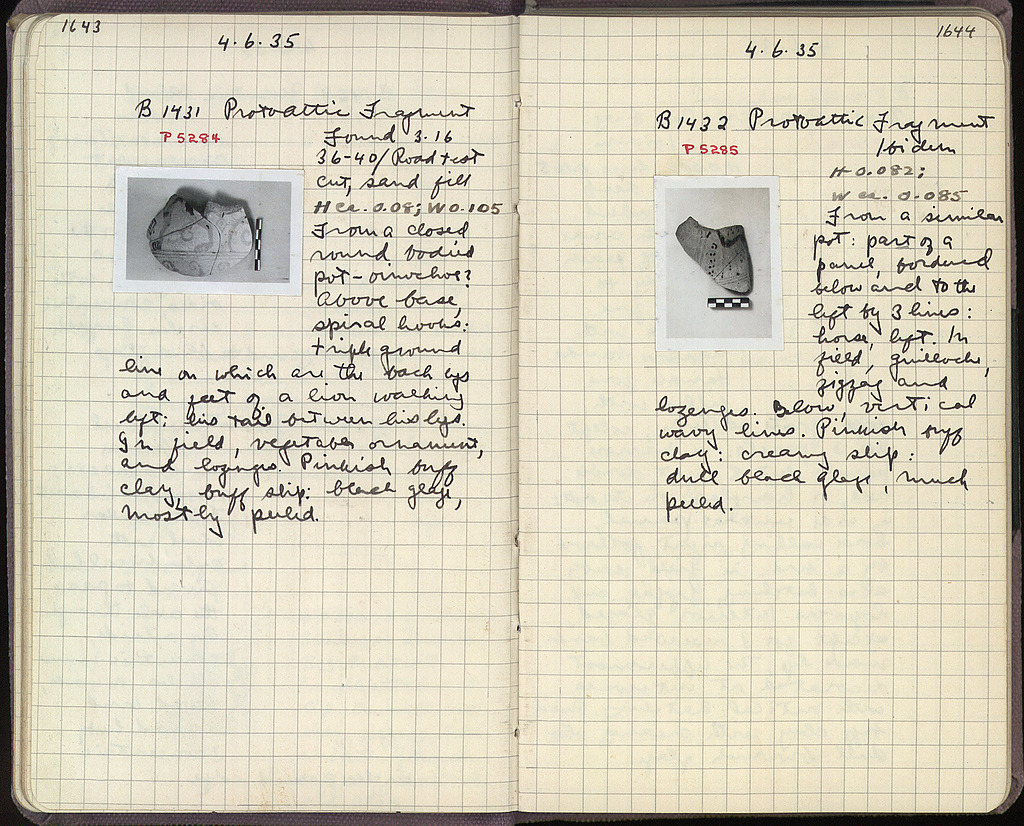 1643
4.6.35
B 1431 Protoattic Fragment
P 5284
Found 3.16
36-40/ Road test
cut, sand fill
H ca. 0.08; W 0.105
From a closed
round bodied
pot - oinochoe?
Above base,
spiral hooks:
triple ground
line on which are the back legs
and feet of a lion walking
left: his tail between his legs.
In field, vegetable ornament,
and lozenges. Pinkish buff
clay, buff slip: black glaze,
mostly peeled.
1644
4.6.35
B 1432 Protoattic Fragment
P 5285
Ibidem
H 0.082;
W ca. 0.085
From a similar
pot: part of a
panel, bordered
below and to the
left by 3 lines:
horse, left. In
field, guilloche,
zigzag and
lozenges. Below, vertical
wavy lines. Pinkish buff
clay: creamy slip:
dull black glaze, much
peeled.